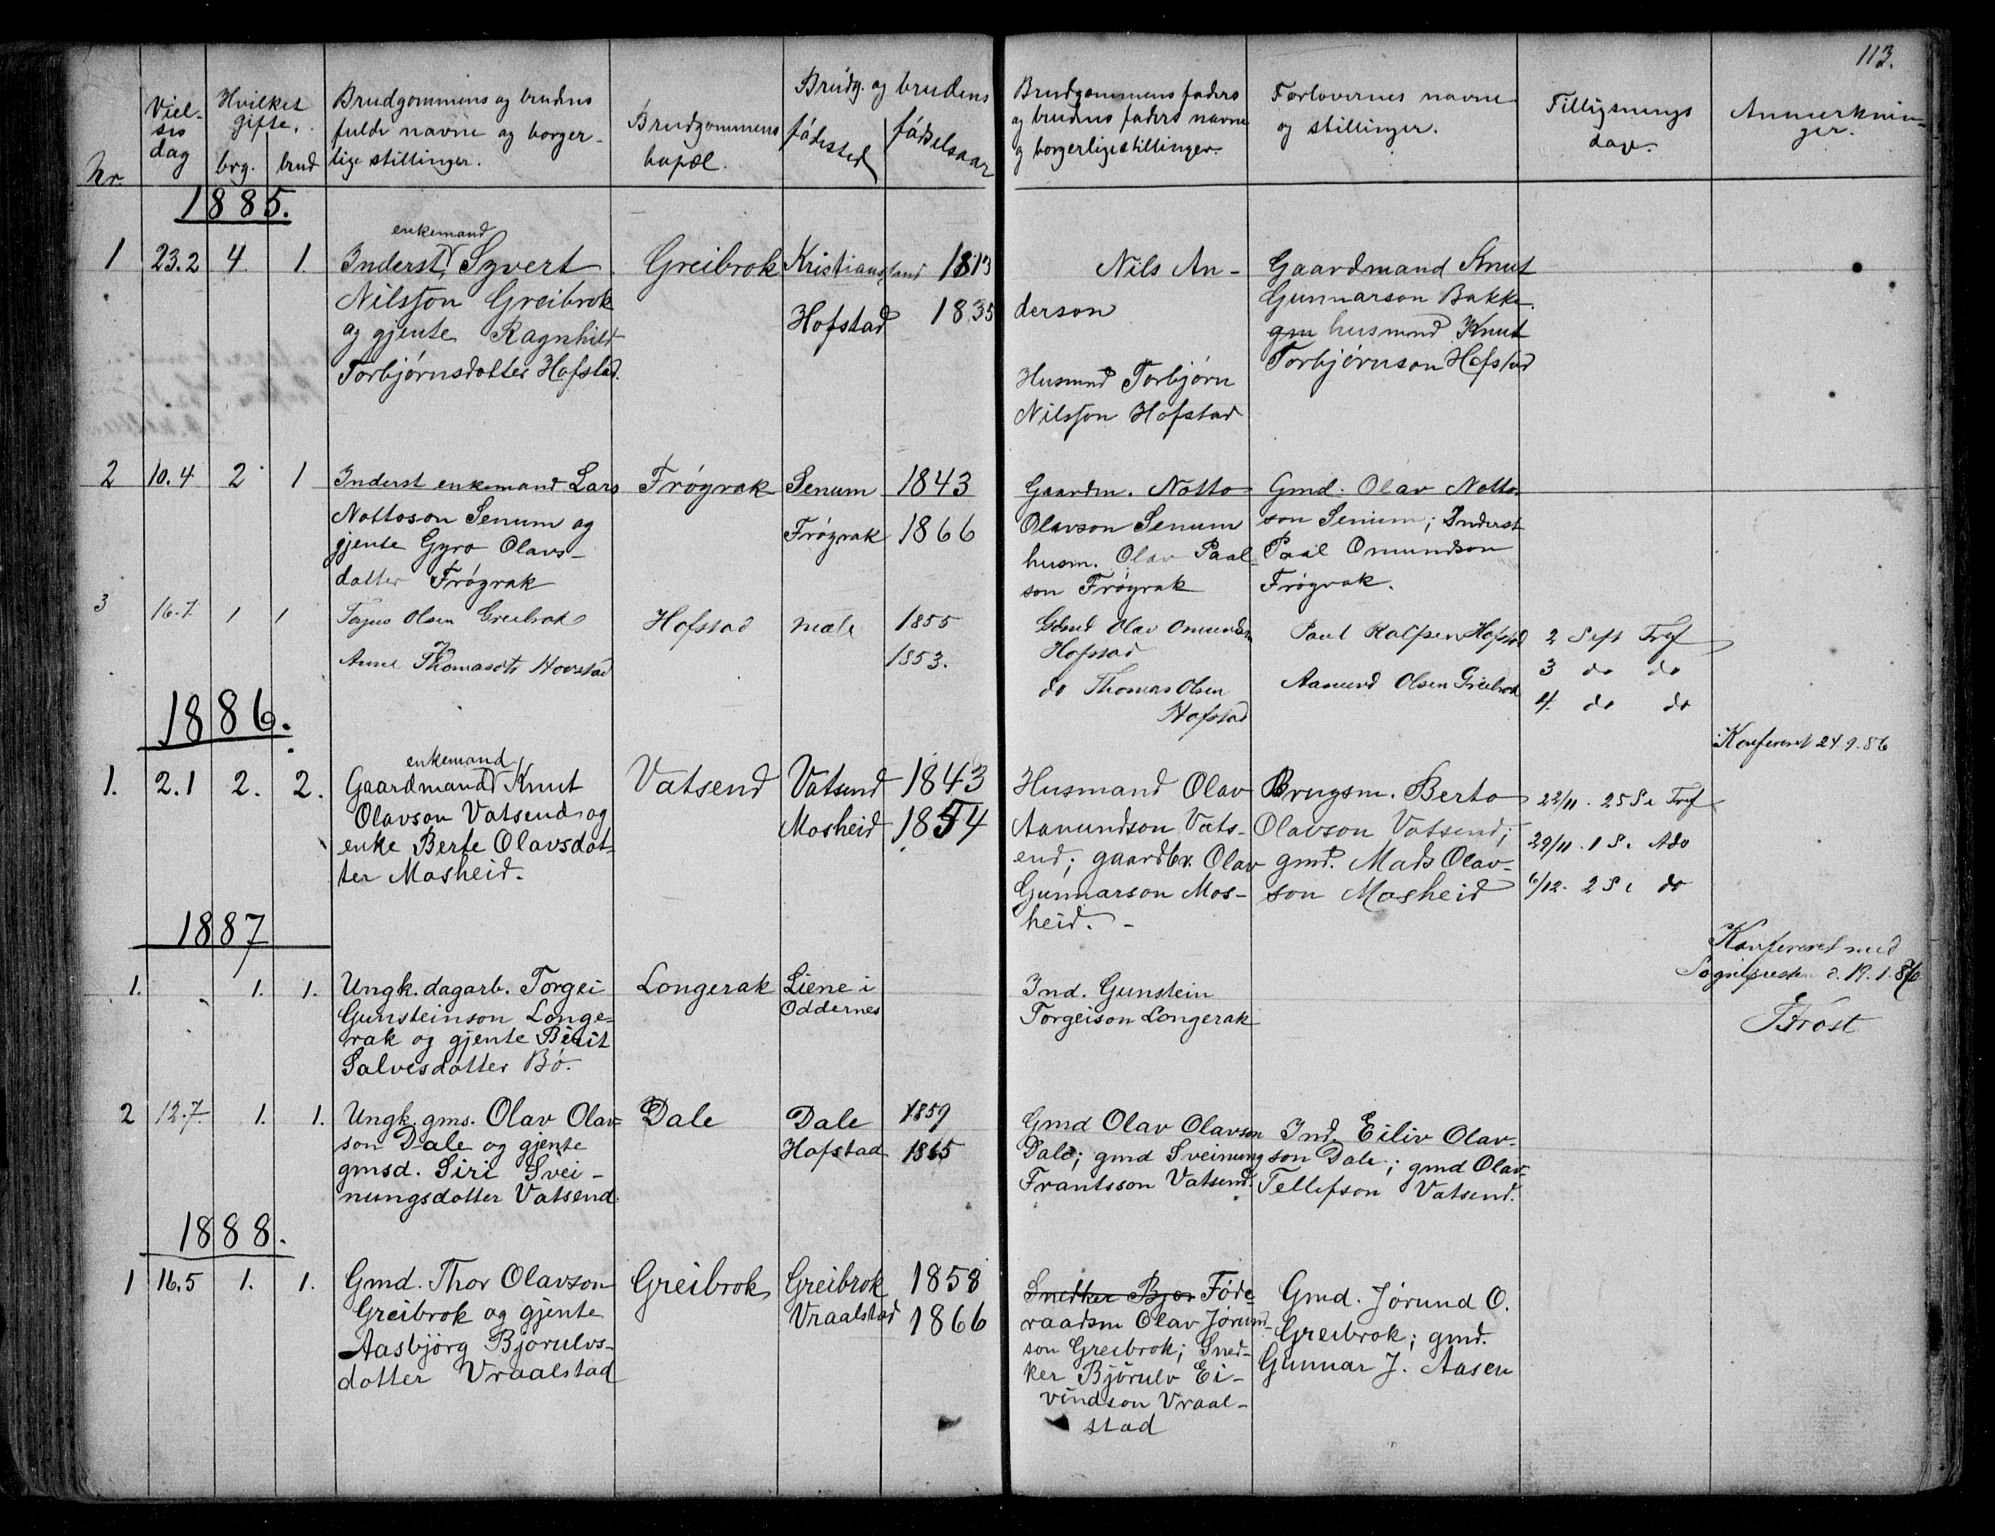 113.
Nr.
Viel-
ses
dag
Hvilket
gifte.
brg. brud
Brudgommens og brudens
fulde navne og borger-
lige stillinger.
Brudgommens
bopæl.
Brudg. og brudens
fødested
fødselsaar
Brudgommens faders
og brudens faders navne
og borgerlige stillinger.
Forlovernes navne
og stillinger.
Tillysnings
dage.
Anmerknin-
ger.
1885.
1 23.2 4. 1.
enkemand
Inderst Syvert
Nilsson Greibrok
og gjente Ragnhild
Torbjørnsdotter Hofstad.
Greibrok
Kristianssand 1813
Hofstad 1835
Nils An-
derson
Husmnd Torbjørn
Nilsson Hofstad
Gaardmand Knut
Gunnarson Bakke.
gm husmnd Knut
Torbjørnson Hofstad
2 10.4 2 1
Inderst enkemand Lars
Nottoson Senum og
gjente Gyro Olavs-
datter Frøgrak
Frøgrak
Senum 1843
Frøgrak 1866
Gaardm. Notto
Olavson Senum
husm. Olav Paal-
son Frøgrak
Gmd. Olav Notto-
son Senum; Inderst
Paal Omundson
Frøgrak.
3 16.7 1 1
Tarjus Olsen Greibrok
og
Anne Thomasdtr Hovstad
Hofstad
male 1855
1853.
Gdmd Olav Omundsen
Hofstad
do Thomas Olsen
Hofstad
Paul Rolfsen Hofstad
Aanund Olsen Greibrok
2 Sept Tref
3 do do
4. do do
1886.
Konfereret 24.9.86
1. 2.1 2. 2.
enkemand
Gaardmand Knut
Olavson Vatsend og
enke Berte Olavsdot-
ter Mosheid.
Vatsend
Vatsend 1843
Mosheid 1854
Husmand Olav
Aanundson Vats-
end; gaardbr. Olav
Gunnarson Mos-
heid. -
Brugsm. Berto
Olavson Vatsend;
gmd. Mads Olav-
son Mosheid
22/11. 25 S. e Tref
29/11. 1 S. i Ado
6/12. 2 S i do
1887
Konfereret med
Sognepresten d. 19.1.86
Frost
1. 1. 1.
Ungk. dagarb. Torgei
Gunsteinson Longe-
rak og gjente Birit
Salvesdotter Bø.
Longerak
Liene i
Oddernes
Ind. Gunstein
Torgeison Longerak
2 12.7. 1. 1.
Ungk. gms. Olav Olav-
son Dale og gjente
gmsd. Siri Svei-
nungsdotter Vatsend.
Dale
Dale 1859
Hofstad 1865
Gmd Olav Olavson
Dale; gmd Sveinung
Frantsson Vatsend.
Ind. Eiliv Olav-
son Dale; gmd Olav
Tellefson Vatsend.
1888.
1 16.5 1. 1.
Gmd. Thor Olavson
Greibrok og gjente
Aasbjørg Bjørulvs-
dotter Vraalstad
Greibrok
Greibrok 1858
Vraalstad 1866
Snedker Bjør Føde-
raadsm Olav Jørund-
son Greibrok; Sned-
ker Bjørulv Ei-
vindson Vraal-
stad
Gmd. Jørund O.
Greibrok; gmd.
Gunnar J. Aasen